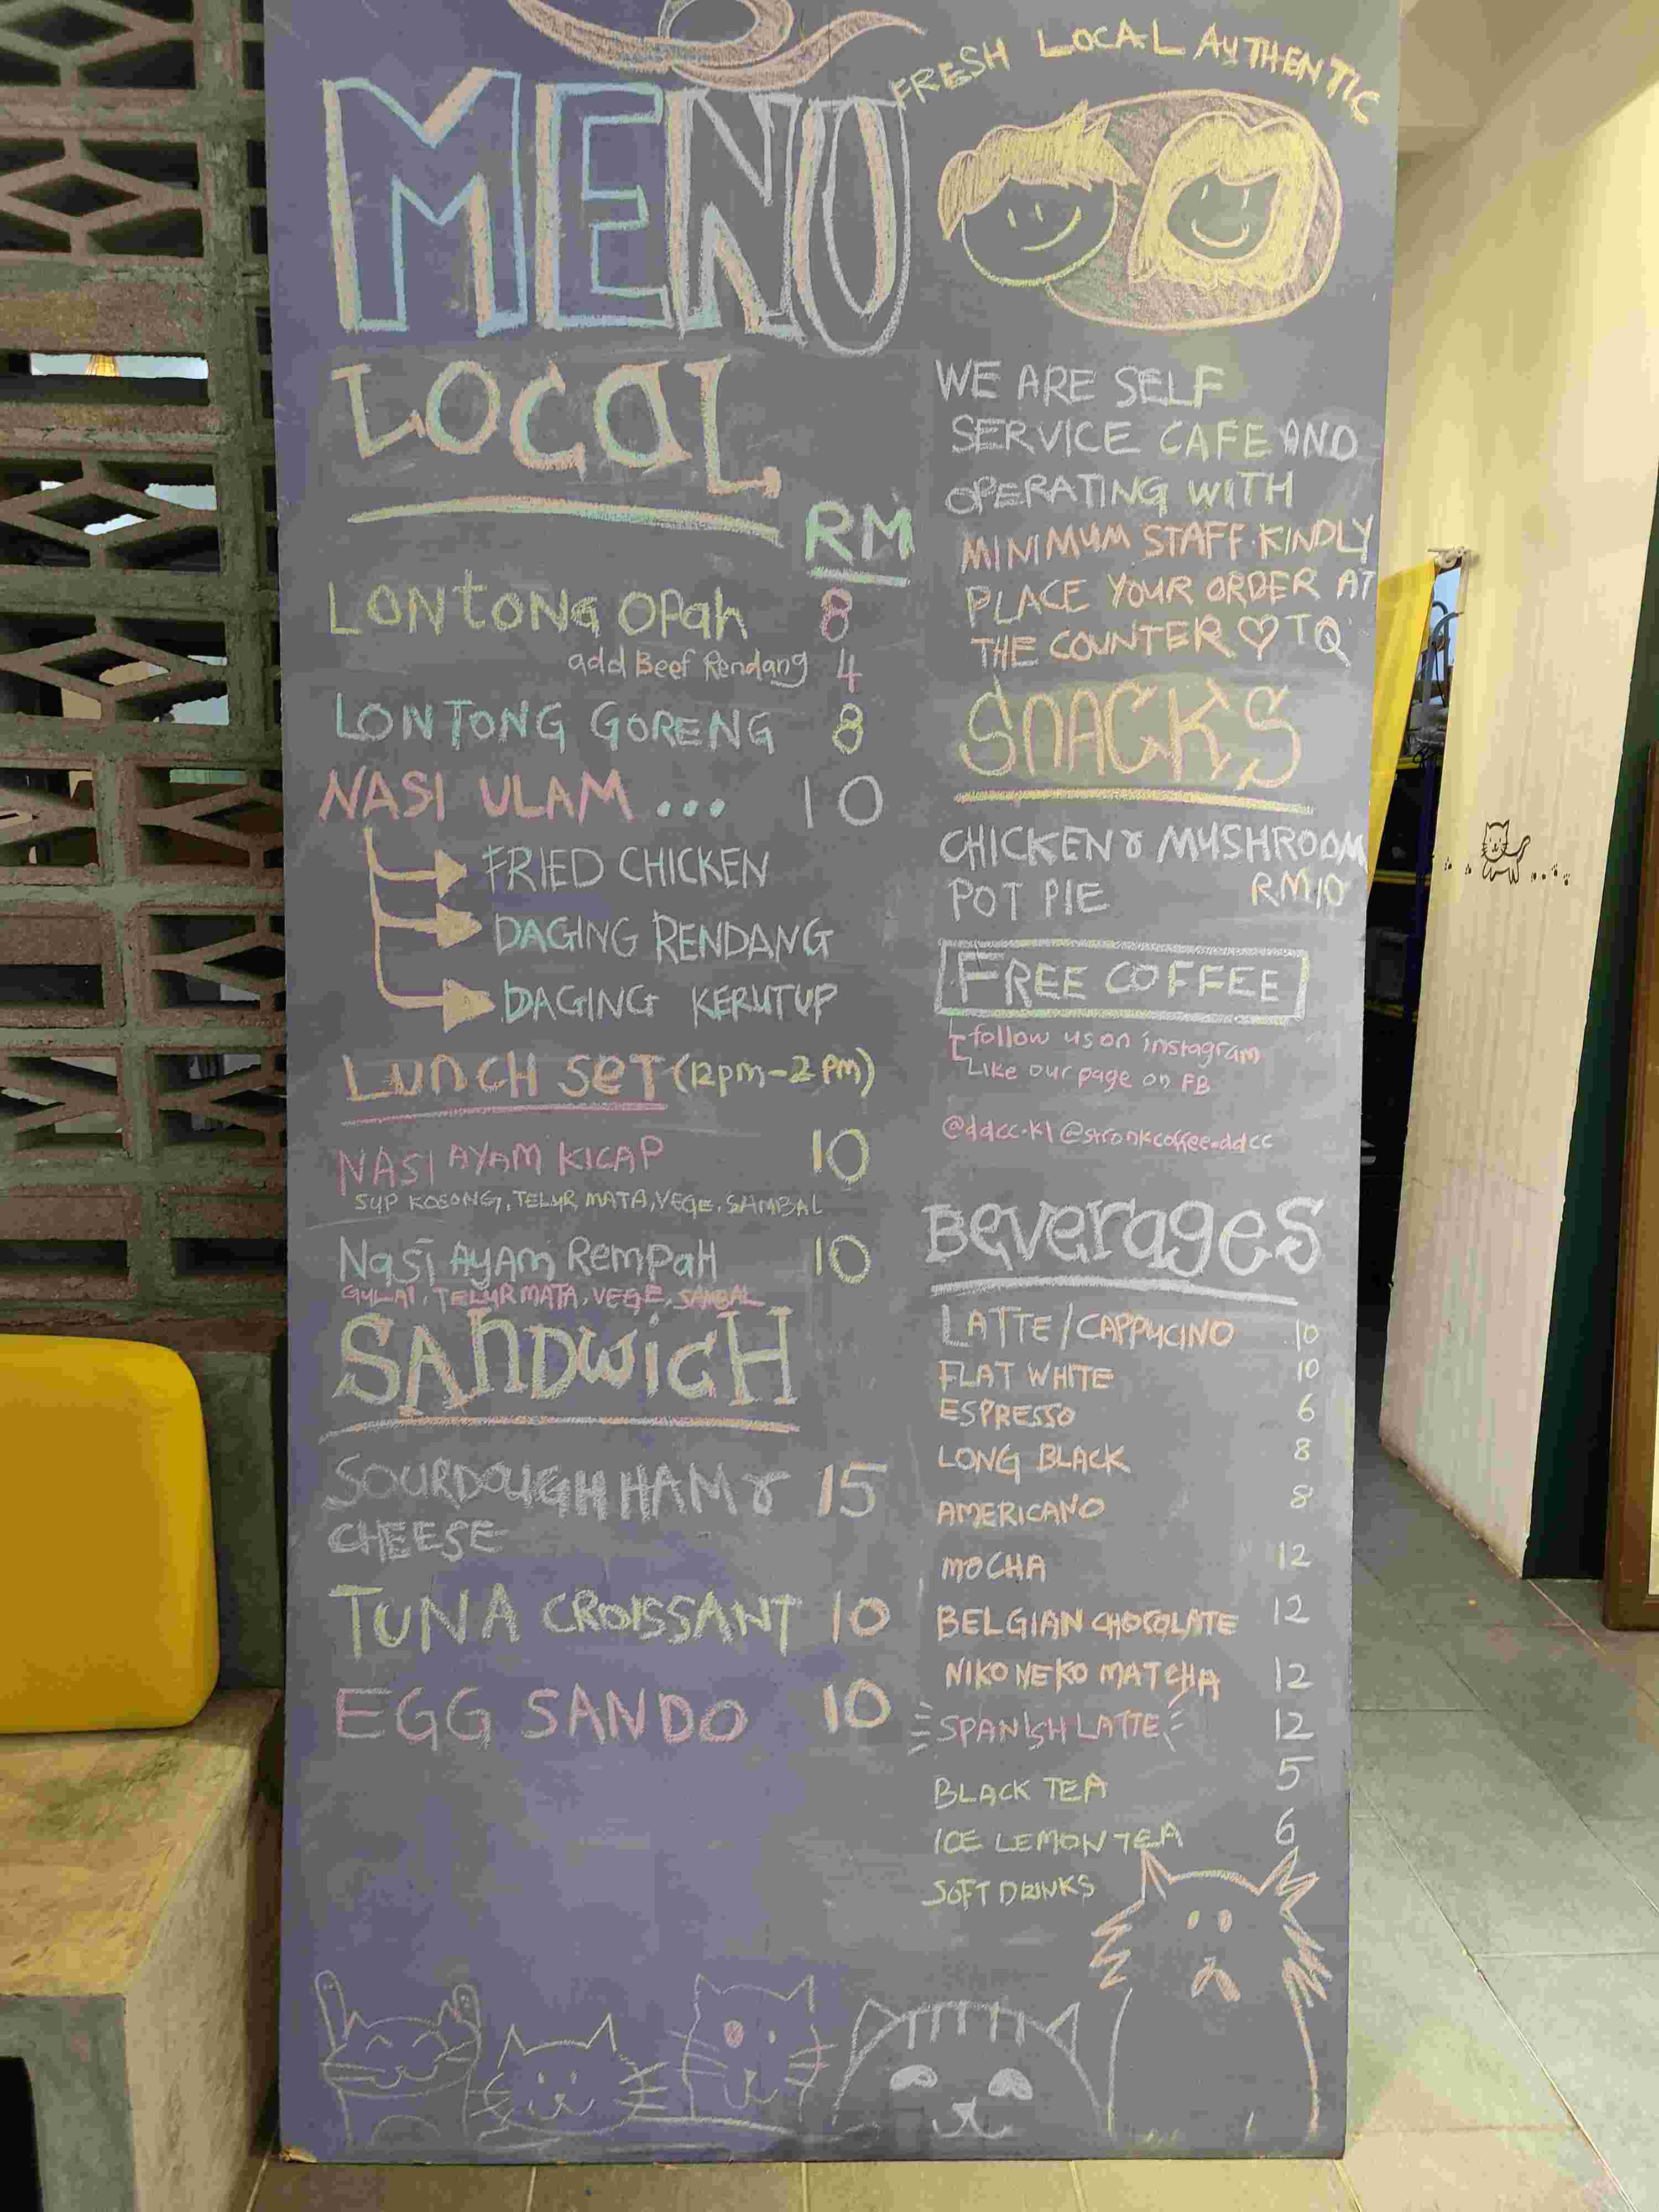 MENU
LOCAL
RM
LONTONG OPAH 8
add Beef Rendang 4
LONTONG GORENG 8
NASI ULAM ... 10
FRIED CHICKEN
DAGING RENDANG
DAGING KERUTUP
LUNCH SET (12pm-2pm)
NASI AYAM KICAP 10
SUP KOSONG, TELUR MATA, VEGE, SAMBAL
NASI AYAM REMPAH 10
GULAI, TELUR MATA, VEGE, SAMBAL
SANDWICH
SOURDOUGH HAM & 15
CHEESE
TUNA CROISSANT 10
EGG SANDO 10
FRESH LOCAL AUTHENTIC
WE ARE SELF
SERVICE CAFE AND
OPERATING WITH
MINIMUM STAFF. KINDLY
PLACE YOUR ORDER AT
THE COUNTER ♡ TQ
SNACKS
CHICKEN & MUSHROOM
POT PIE RM10
FREE COFFEE
follow us on instagram
Like our page on FB
@ddcc.kl @stronkcoffee.ddcc
Beverages
LATTE/CAPPUCINO 10
FLAT WHITE 10
ESPRESSO 6
LONG BLACK 8
AMERICANO 8
MOCHA 12
BELGIAN CHOCOLATE 12
NIKO NEKO MATCHA 12
SPANISH LATTE 12
BLACK TEA 5
ICE LEMON TEA 6
SOFT DRINKS